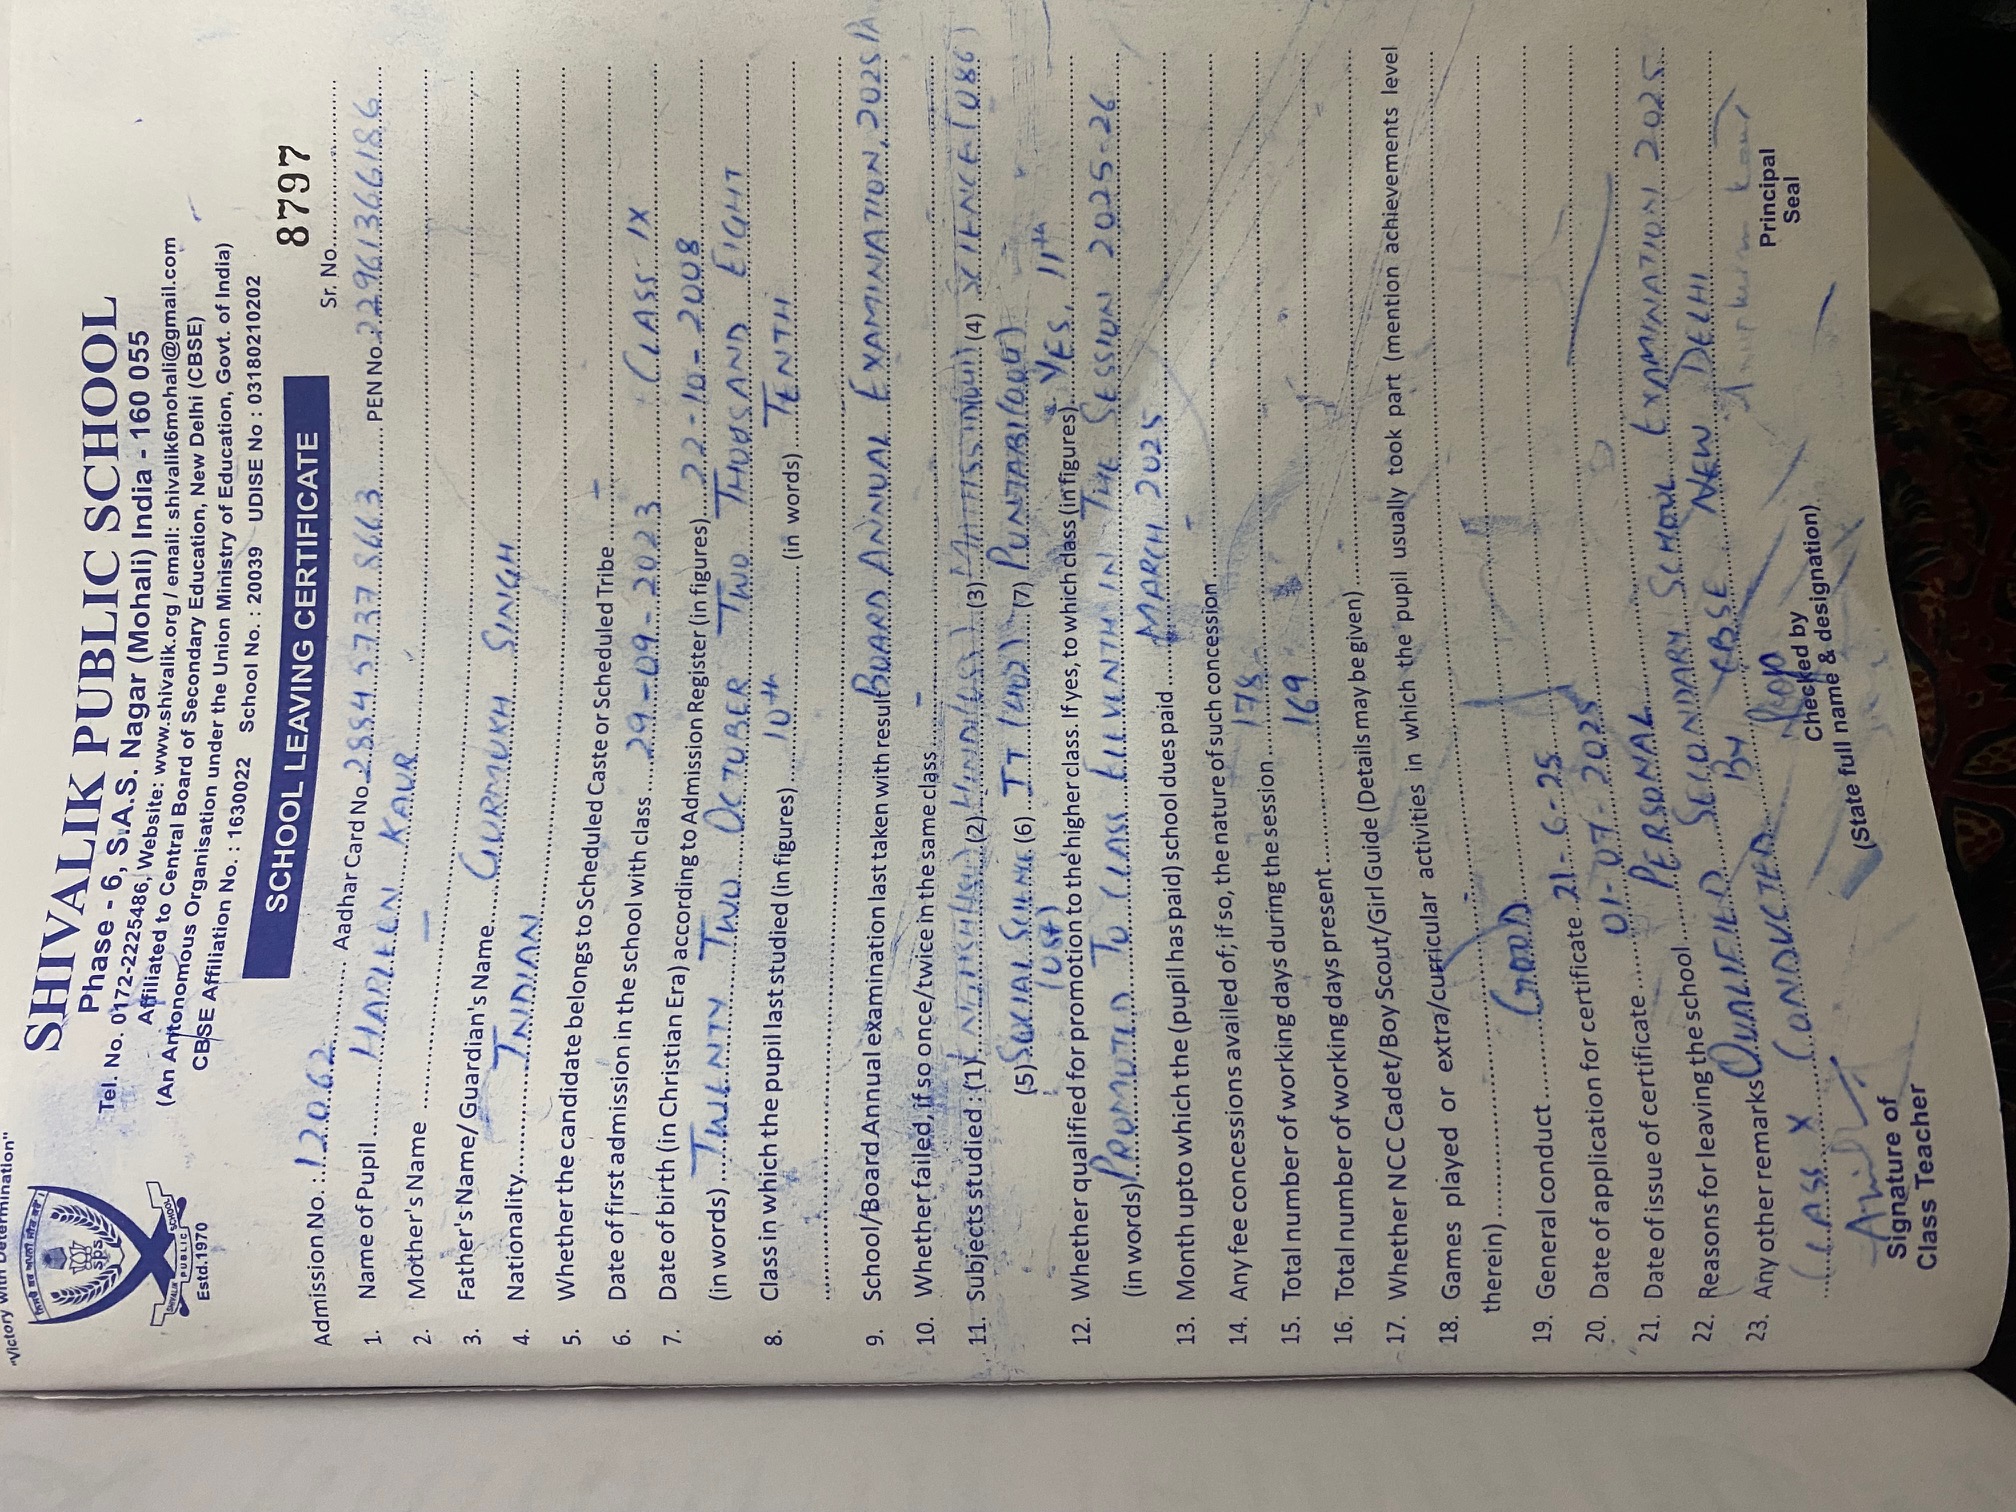 "Victory with Determination"
SHIVALIK PUBLIC SCHOOL
Phase - 6, S.A.S. Nagar (Mohali) India - 160 055
Tel. No. 0172-2225486, Website: www.shivalik.org / email: shivalik6mohali@gmail.com
Affiliated to Central Board of Secondary Education, New Delhi (CBSE)
(An Autonomous Organisation under the Union Ministry of Education, Govt. of India)
CBSE Affiliation No. : 1630022 School No. : 20039 UDISE No : 03180210202
SPS
SHIVALIK PUBLIC SCHOOL
Estd.1970
SCHOOL LEAVING CERTIFICATE
8797
Sr. No.
Admission No. : 12062 Aadhar Card No. 2854 5737 8663 PEN No. 22961366186
1. Name of Pupil HARLEEN KAUR
2. Mother's Name –
3. Father's Name/ Guardian's Name GURMUKH SINGH
4. Nationality INDIAN
5. Whether the candidate belongs to Scheduled Caste or Scheduled Tribe –
6. Date of first admission in the school with class 29-09-2023 CLASS IX
7. Date of birth (in Christian Era) according to Admission Register (in figures) 22-10-2008
(in words) TWENTY TWO OCTOBER TWO THOUSAND EIGHT
8. Class in which the pupil last studied (in figures) 10th (in words) TENTH
9. School/Board Annual examination last taken with result BOARD ANNUAL EXAMINATION, 2025
10. Whether failed, if so once/twice in the same class –
11. Subjects studied : (1) ENGLISH (2) HINDI (3) (4) SCIENCE (086)
(5) SOCIAL SCIENCE (6) IT (402) (7) PUNJABI (004)
(087)
12. Whether qualified for promotion to the higher class. If yes, to which class (in figures) YES, 11th
(in words) PROMOTED TO CLASS ELEVENTH IN THE SESSION 2025-26
13. Month upto which the (pupil has paid) school dues paid MARCH 2025
14. Any fee concessions availed of; if so, the nature of such concession –
15. Total number of working days during the session 178
16. Total number of working days present 169
17. Whether NCC Cadet/Boy Scout/Girl Guide (Details may be given)
18. Games played or extra/curricular activities in which the pupil usually took part (mention achievements level
therein) –
19. General conduct GOOD
20. Date of application for certificate 21-6-25
21. Date of issue of certificate 01-07-2025
22. Reasons for leaving the school PERSONAL
23. Any other remarks QUALIFIED SECONDARY SCHOOL EXAMINATION 2025
CLASS X CONDUCTED BY CBSE NEW DELHI
Signature of
Class Teacher
Checked by
(State full name & designation)
Principal
Seal